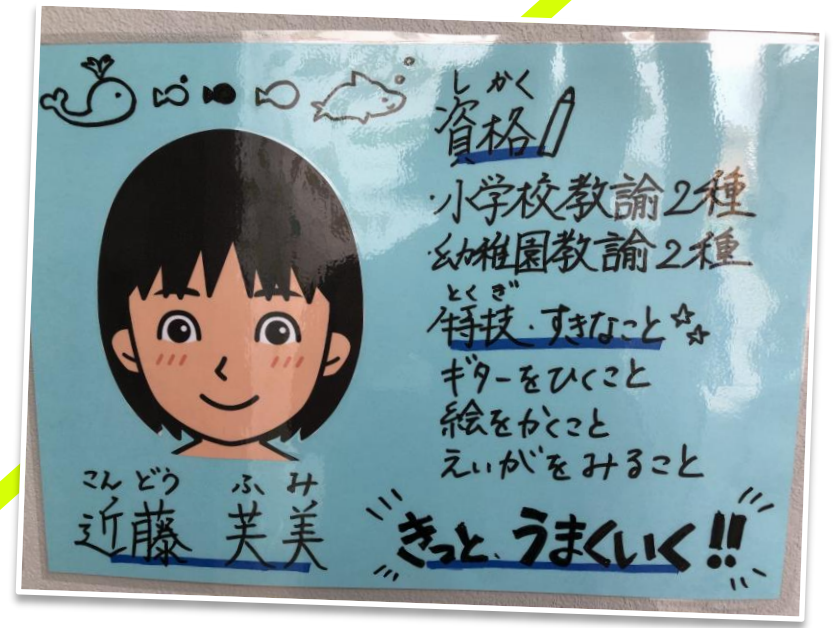 しかく
資格
・小学校教諭2種
・幼稚園教諭2種
とくぎ
特技・すきなこと
ギターをひくこと
絵をかくこと
えいがをみること
こんどう ふみ
近藤 芙美
きっと、うまくいく!!